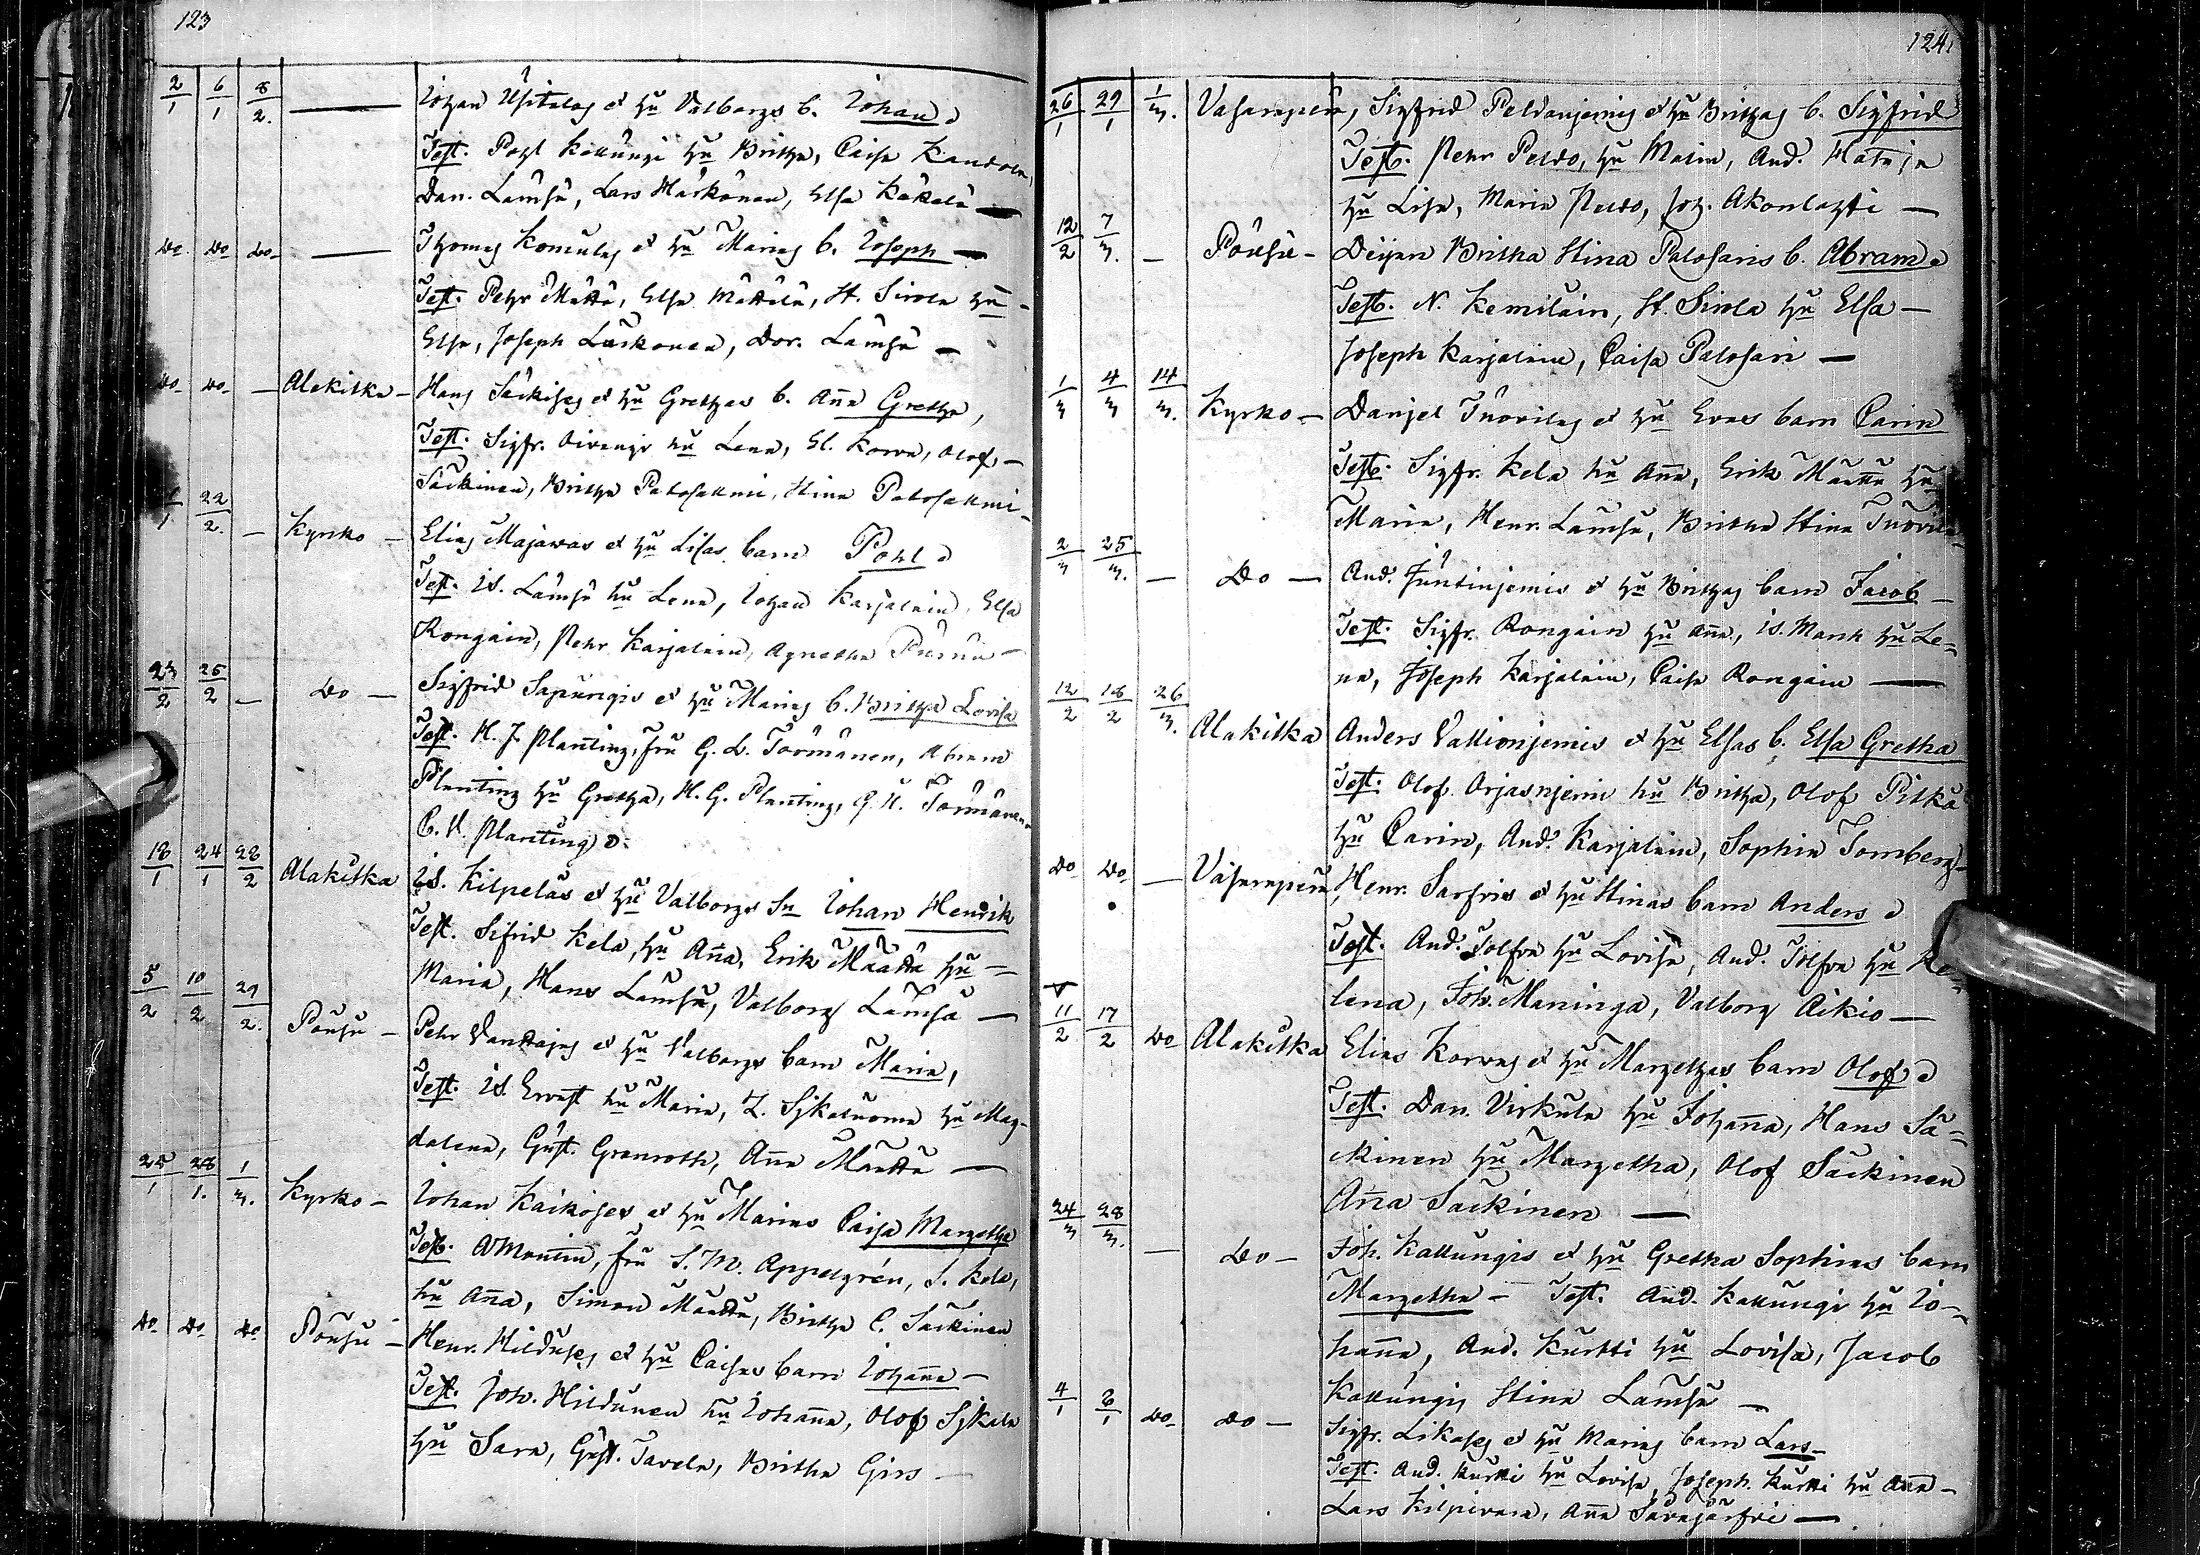 123
2/1 6/1 8/2. — Johan Ûsitalos et hû Valborgs b. Johan
Test. Pohl Kallungi hû Britha, Caisa Kandola,
Dan. Lämsä, Lars Härkönen, Elsa Käkelä —
do. do do — Thomas Komulas et hû Marias b. Joseph —
Test. Pehr Määttä, Elsa Määttälä, St. Sirola hû
Elsa, Joseph Laskonen, Dor. Lämsä —
do do — Alakitka — Hans Säckises et hû Grethas b. Anna Gretha,
Test. Sigfr. Oivangi hû Lena, El. Korva, Olof
Säckinen, Britha Palosalmi, Stina Palosalmi
22/2. — Kyrko — Elias Majavas et hû Lisas barn Pohl
Test. Is. Lämsä hû Lena, Johan Karjalain, Elsa
Rongain, Pehr Karjalain, Agnetha Purnu —
23/2 25/2 — do — Sigfrid Sapungis et hû Marias b. Britha Lovisa
Test. H. J. Planting, fru G. L. Törmänen, Abram
Planting hû Gretha, H. G. Planting, G. U. Törmänen
C. U. Planting
18/1 24/1 28/2 Alakitka Is. Kilpeläs et hû Valborgs Sn Johan Henrik
Test. Sifrid Kela, hû Anna, Erik Määttä hû
Maria, Hans Lämsä, Valborg Lämsä —
5/2 10/2 29/2. Pousu — Pehr Vanttajas et hû Valborgs barn Maria,
Test. Is. Ervast hû Maria, Z. Sjkaluoma hû Mag-
dalena, Gust. Granroth, Anna Määttä —
25/1 28/1. 1/3. Kyrko — Johan Kaikoses et hû Marias Caisa Margetha
Test. A Montin, fru S. M. Appelgrén, S. Kela,
hû Anna, Simon Määttä, Britha C. Säckinen
do do do Pousu — Henr. Hilduses et hû Caisas barn Johanna —
Test. Joh. Hildunen hû Johanna, Olof Sjkala
hû Sara, Gust. Tavela, Britha Girs —
124.
26/1 29/1 1/3. Vasaraperä, Sigfrid Peldoniemis et hû Brithas b. Sigfrid
Test. Pehr Peldo, hû Malin, And. Hataja
hû Lisa, Maria Peldo, Joh. Akonlahti —
12/2 7/3. — Pousu — Deijan Britha Stina Palosaris b. Abram
Test. N. Kemiläin, St. Sirola hû Elsa —
Joseph Karjalain, Caisa Palosari —
1/3 4/3 14/3. Kyrko — Danjel Tuovilas et hû Evas barn Carin
Test. Sigfr. Kela hû Anna, Erik Määttä hû
Maria, Henr. Lämsä, Britha Stina Tuovila
2/3 25/3. — Do — And. Juntinjemis et hû Brithas barn Jacob —
Test. Sigfr. Rongain hû Anna, Is. Mank hû Le-
na, Joseph Karjalain, Caisa Rongain —
12/2 18/2 26/3. Alakitka Anders Vallionjemis et hû Elsas b. Elsa Gretha
Test. Olof Orjasnjemi hû Britha, Olof Pitkä
hû Carin, And. Karjalain, Sophia Tornberg
Do Do — Vasaraperä, Henr. Sarfvis et hû Stinas barn Anders
Test. And. Tolfva hû Lovisa, And. Tolfva hû He-
lena, Joh. Maninga, Valborg Aikio —
11/2 17/2 do Alakitka Elias Korvas et hû Margethas barn Olof
Test. Dan. Virkula hû Johanna, Hans Sä-
ckinen hû Margetha, Olof Säckinen
Anna Säckinen —
24/3 28/3. — do — Joh. Kallungis et hû Gretha Sophias barn
Margetha — Test. And. Kallungi hû Jo-
hanna, And. Kurtti hû Lovisa, Jacob
Kallungi, Stina Lämsä —
4/1 6/1 do do — Sigfr. Likases et hû Marias barn Lars —
Test. And. Kurtti hû Lovisa, Joseph Kurtti hû Anna —
Lars Kilpivara, Anna Säräjärfvi —